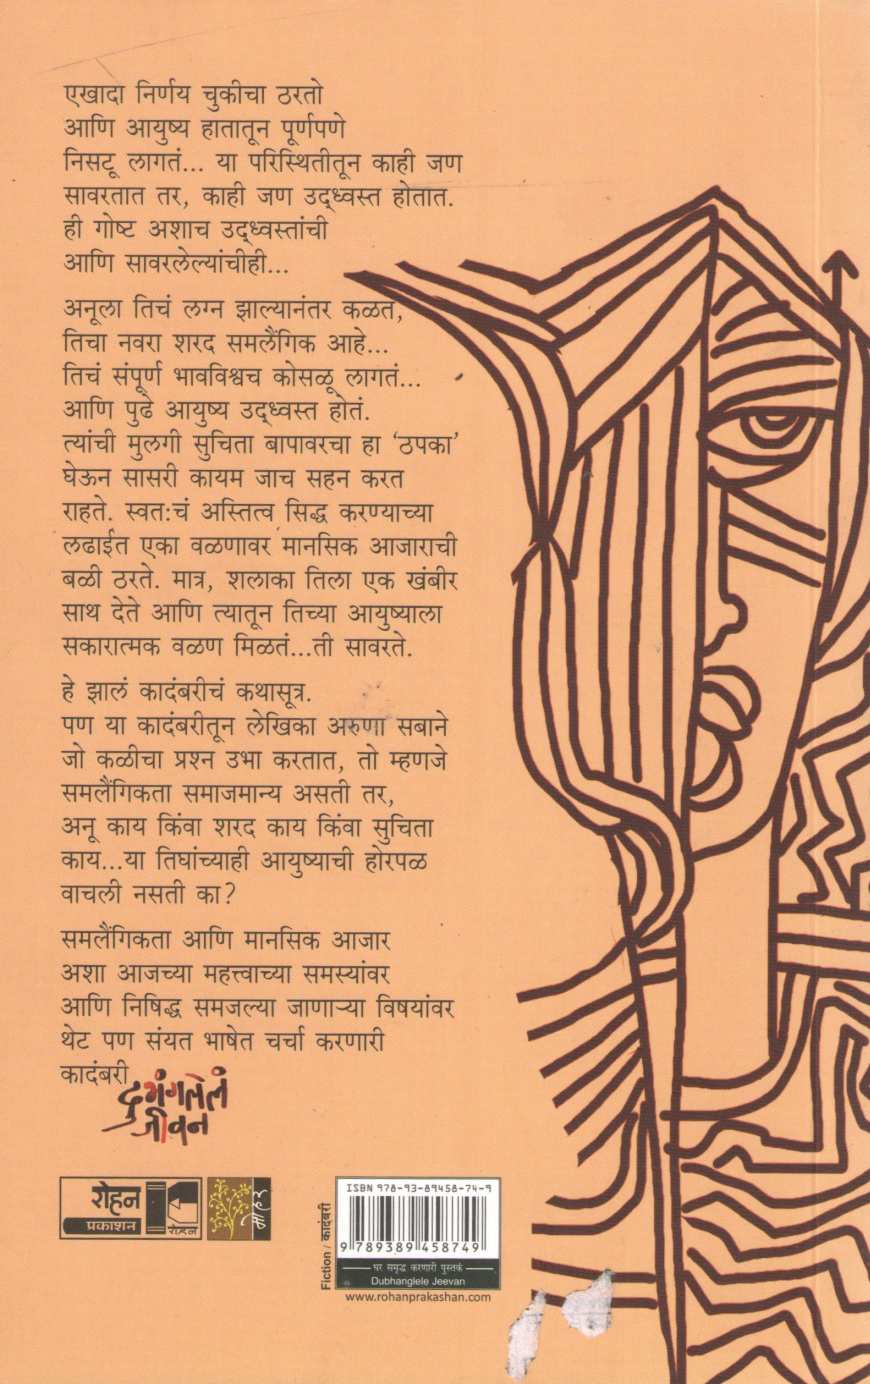 एखादा निर्णय चुकीचा ठरतो
आणि आयुष्य हातातून पूर्णपणे
निसटू लागतं... या परिस्थितीतून काही जण
सावरतात तर, काही जण उद्ध्वस्त होतात.
ही गोष्ट अशाच उद्ध्वस्तांची
आणि सावरलेल्यांचीही...
अनूला तिचं लग्न झाल्यानंतर कळतं,
तिचा नवरा शरद समलैंगिक आहे...
तिचं संपूर्ण भावविश्वच कोसळू लागतं...
आणि पुढे आयुष्य उद्ध्वस्त होतं.
त्यांची मुलगी सुचिता बापावरचा हा ‘ठपका’
घेऊन सासरी कायम जाच सहन करत
राहते. स्वतःचं अस्तित्व सिद्ध करण्याच्या
लढाईत एका वळणावर मानसिक आजाराची
बळी ठरते. मात्र, शलाका तिला एक खंबीर
साथ देते आणि त्यातून तिच्या आयुष्याला
सकारात्मक वळण मिळतं...ती सावरते.
हे झालं कादंबरीचं कथासूत्र.
पण या कादंबरीतून लेखिका अरुणा सबाने
जो कळीचा प्रश्न उभा करतात, तो म्हणजे
समलैंगिकता समाजमान्य असती तर,
अनू काय किंवा शरद काय किंवा सुचिता
काय...या तिघांच्याही आयुष्याची होरपळ
वाचली नसती का?
समलैंगिकता आणि मानसिक आजार
अशा आजच्या महत्त्वाच्या समस्यांवर
आणि निषिद्ध समजल्या जाणाऱ्या विषयांवर
थेट पण संयत भाषेत चर्चा करणारी
कादंबरी
दुभंगलेलं
जीवन
रोहन
प्रकाशन
रोहन
मोहर
Fiction / कादंबरी
ISBN 978-93-89458-74-9
9 789389 458749
घर समृद्ध करणारी पुस्तकं
Dubhanglele Jeevan
www.rohanprakashan.com